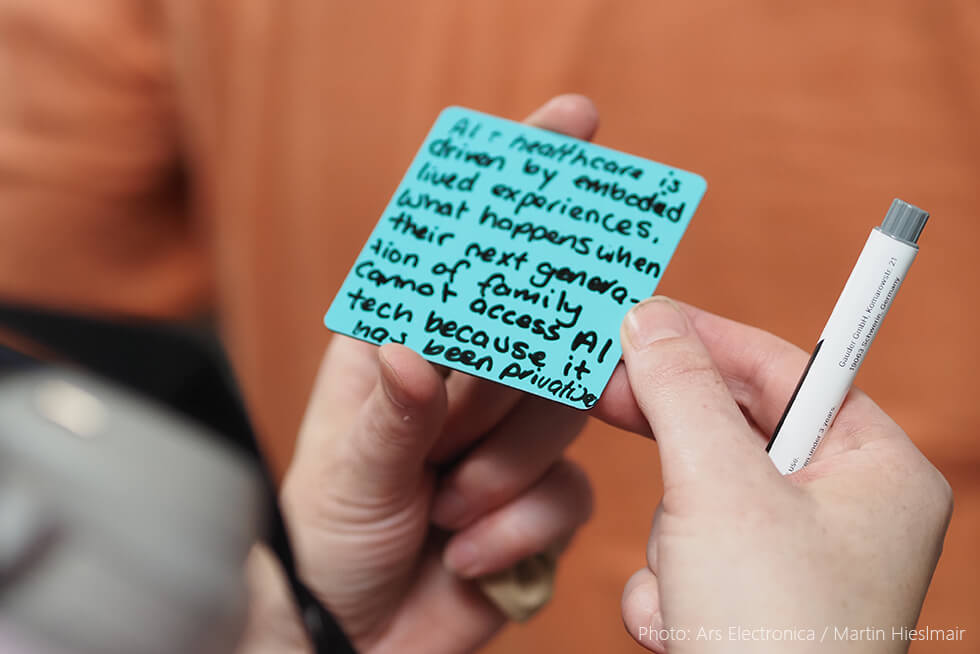 AI - healthcare is
driven by embodied
lived experiences.
What happens when
their next genera-
tion of family
cannot access AI
tech because it
has been privatise
Gauder GmbH, Komarowstr. 21
19063 Schwerin, Germany
use.
en under 3 years
Photo: Ars Electronica / Martin Hieslmair